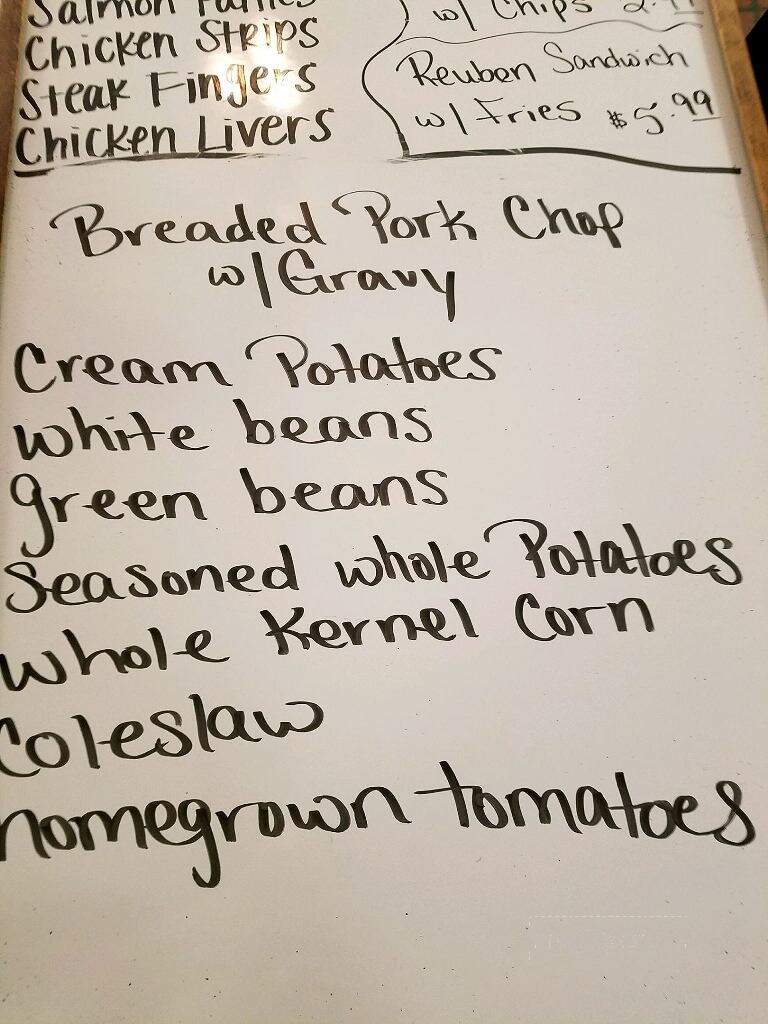 Salmon Patties
Chicken Strips
Steak Fingers
Chicken Livers
w/ Chips
Reuben Sandwich
w/ Fries $5.99
Breaded Pork Chop
w/Gravy
Cream Potatoes
white beans
green beans
Seasoned whole Potatoes
whole Kernel Corn
Coleslaw
homegrown tomatoes